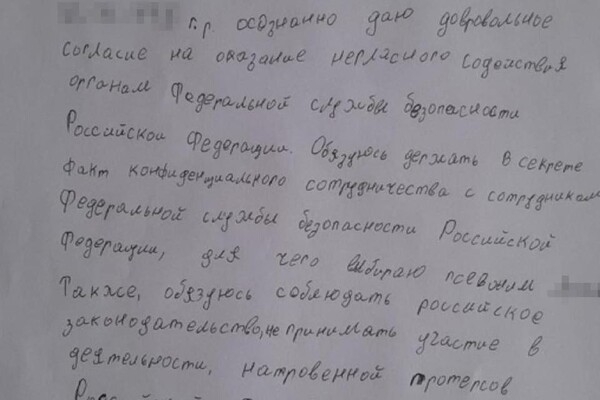 г.р. осознанно даю довровольное
согласие на оказание негласного содействия
органам Федеральной службы безопасности
Российской Федерации. Обязуюсь держать в секрете
факт конфиденциального сотрудничества с сотрудникам
Федеральной службы безопасности Российской
Федерации, для чего выбираю псевоним
Также, обязуюсь соблюдать российское
законодательство, не принимать участие в
деятельности, натровенной протерсов